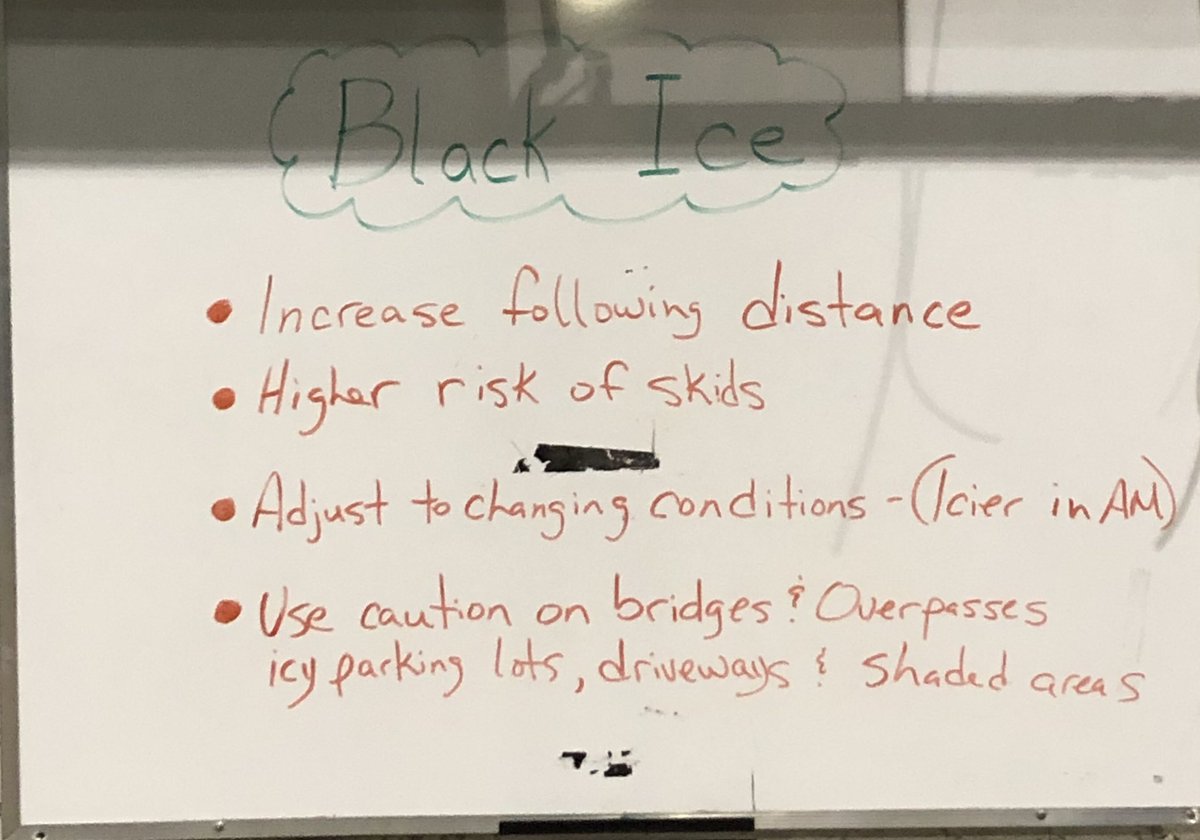 Black Ice
• Increase following distance
• Higher risk of skids
• Adjust to changing conditions - (Icier in AM)
• Use caution on bridges & Overpasses
icy parking lots, driveways & shaded areas